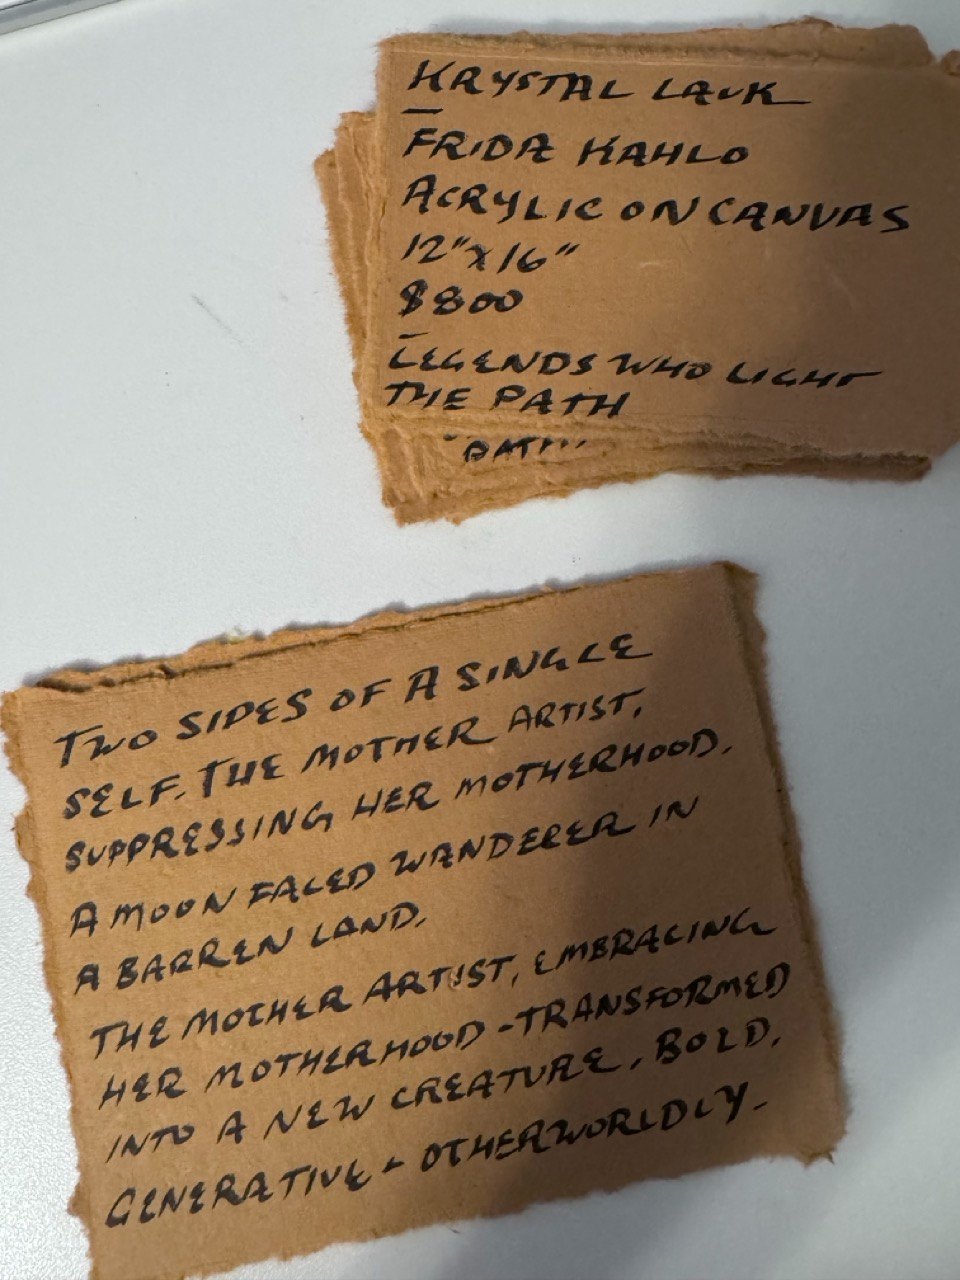 KRYSTAL LAUK
—
FRIDA KAHLO
ACRYLIC ON CANVAS
12"X16"
$800
—
LEGENDS WHO LIGHT
THE PATH
TWO SIDES OF A SINGLE
SELF. THE MOTHER ARTIST,
SUPPRESSING HER MOTHERHOOD.
A MOON FACED WANDERER IN
A BARREN LAND.
THE MOTHER ARTIST, EMBRACING
HER MOTHERHOOD - TRANSFORMED
INTO A NEW CREATURE, BOLD,
GENERATIVE + OTHERWORLDLY.